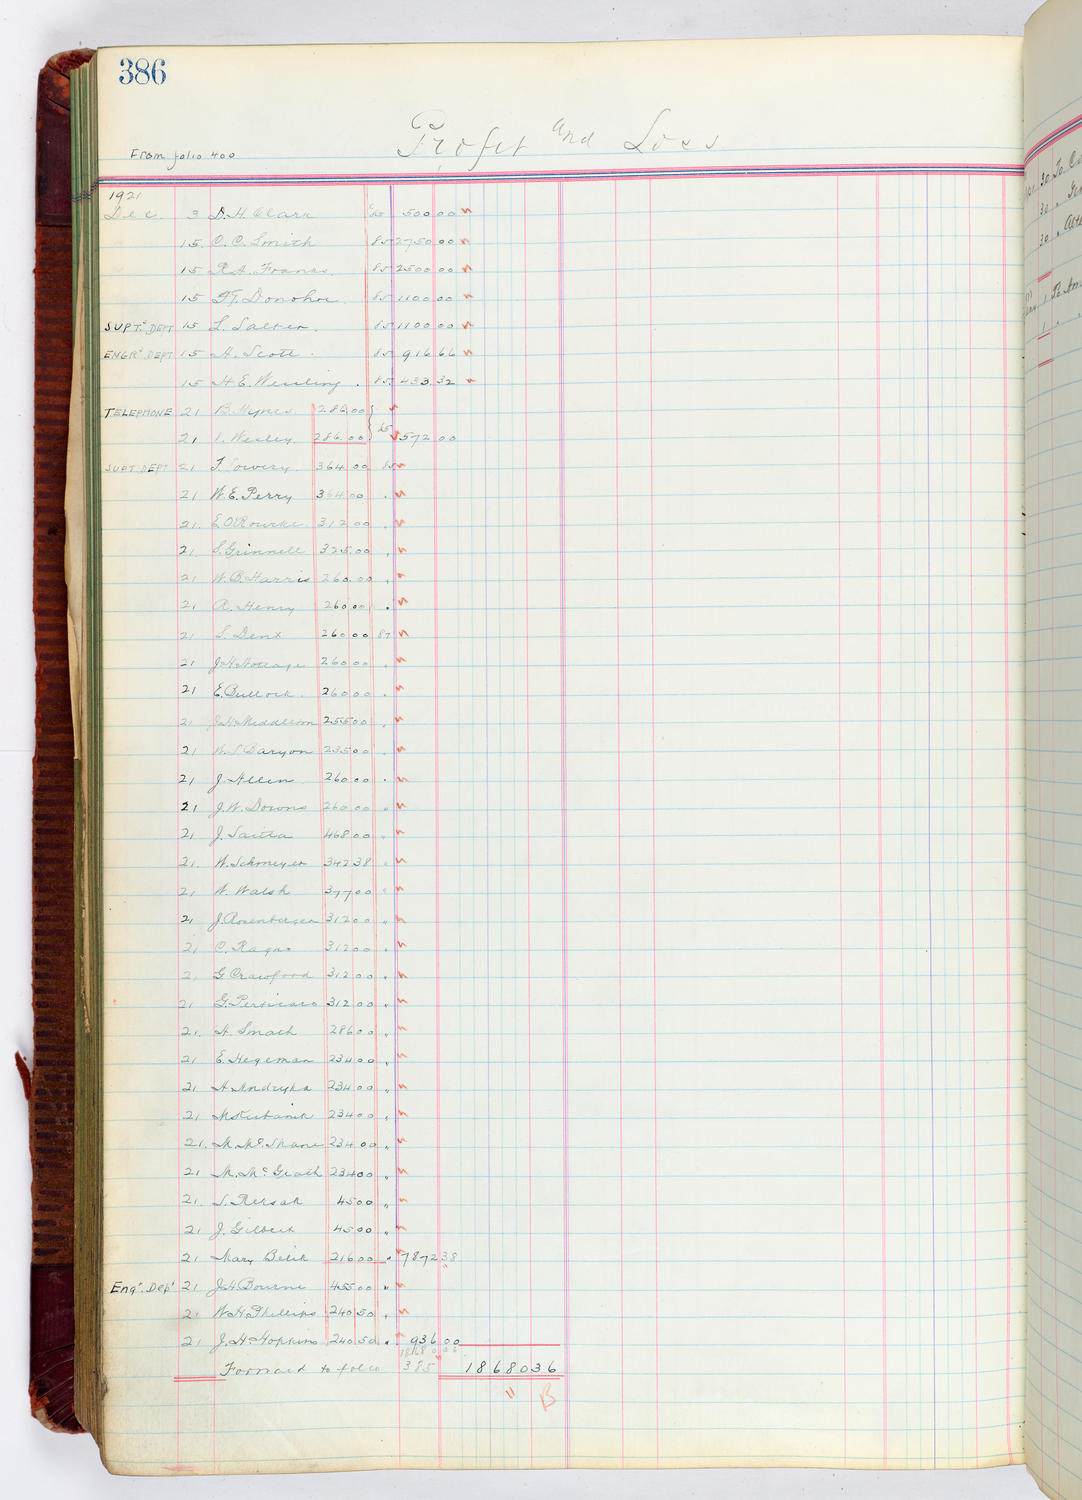 386
Profit and Loss
From folio 400
1921
Dec. 3 D. H. Clark 85 500.00
15. C. C. Smith 85 2750.00
15 R. A. Franks. 85 2500.00
15 F. J. Donohoe. 85 1100.00
SUPT'S DEPT 15 L. Salter. 85 1100.00
ENGR'S DEPT 15 A. Scott. 85 916 66
15 H. E. Wessling. 85. 433.32
TELEPHONE 21 B. Hynes. 286.00
21 I. Wesley. 286.00 85 572 00
SUPT DEPT 21 T. Lowery. 364.00 85
21 W. E. Perry 364.00
21. E. O'Rourke. 312.00
21. S. Grinnell 325.00
21 W. B. Harris 260.00
21 A. Henry 260.00
21 S. Dent 260.00 87
21 J. H. 260.00
21 E. Bullock. 260.00
21 J. H. Middleton 255.00
21 W. S. Baryon 235.00
21 J. Allen 260.00
21 J. W. Downs 260.00
21 J. Saitta 468.00
21. W. Schmeyer 342 38
21 W. Walsh 377.00
21 J. Rosenbergen 312.00
21 C. Ragus 312.00
21. G. Crawford 312.00
21 G. 312.00
21. A. Smath 286.00
21 E. Hegeman 234.00
21 A. Andryka 234.00
21 M. 234.00
21. M. McShane 234.00
21 M. McGrath 234.00
21. S. Rersak 45.00
21 J. Gilbert 45.00
21 Mary Belik 216.00 " 7872 38
Engr. Dept 21 J. H. Bourne 455.00 "
21 W. H. Phillips 240.50
21 J. H. Hopkins 240.50 " 936.00
Forward to folio 385 18680 36
B